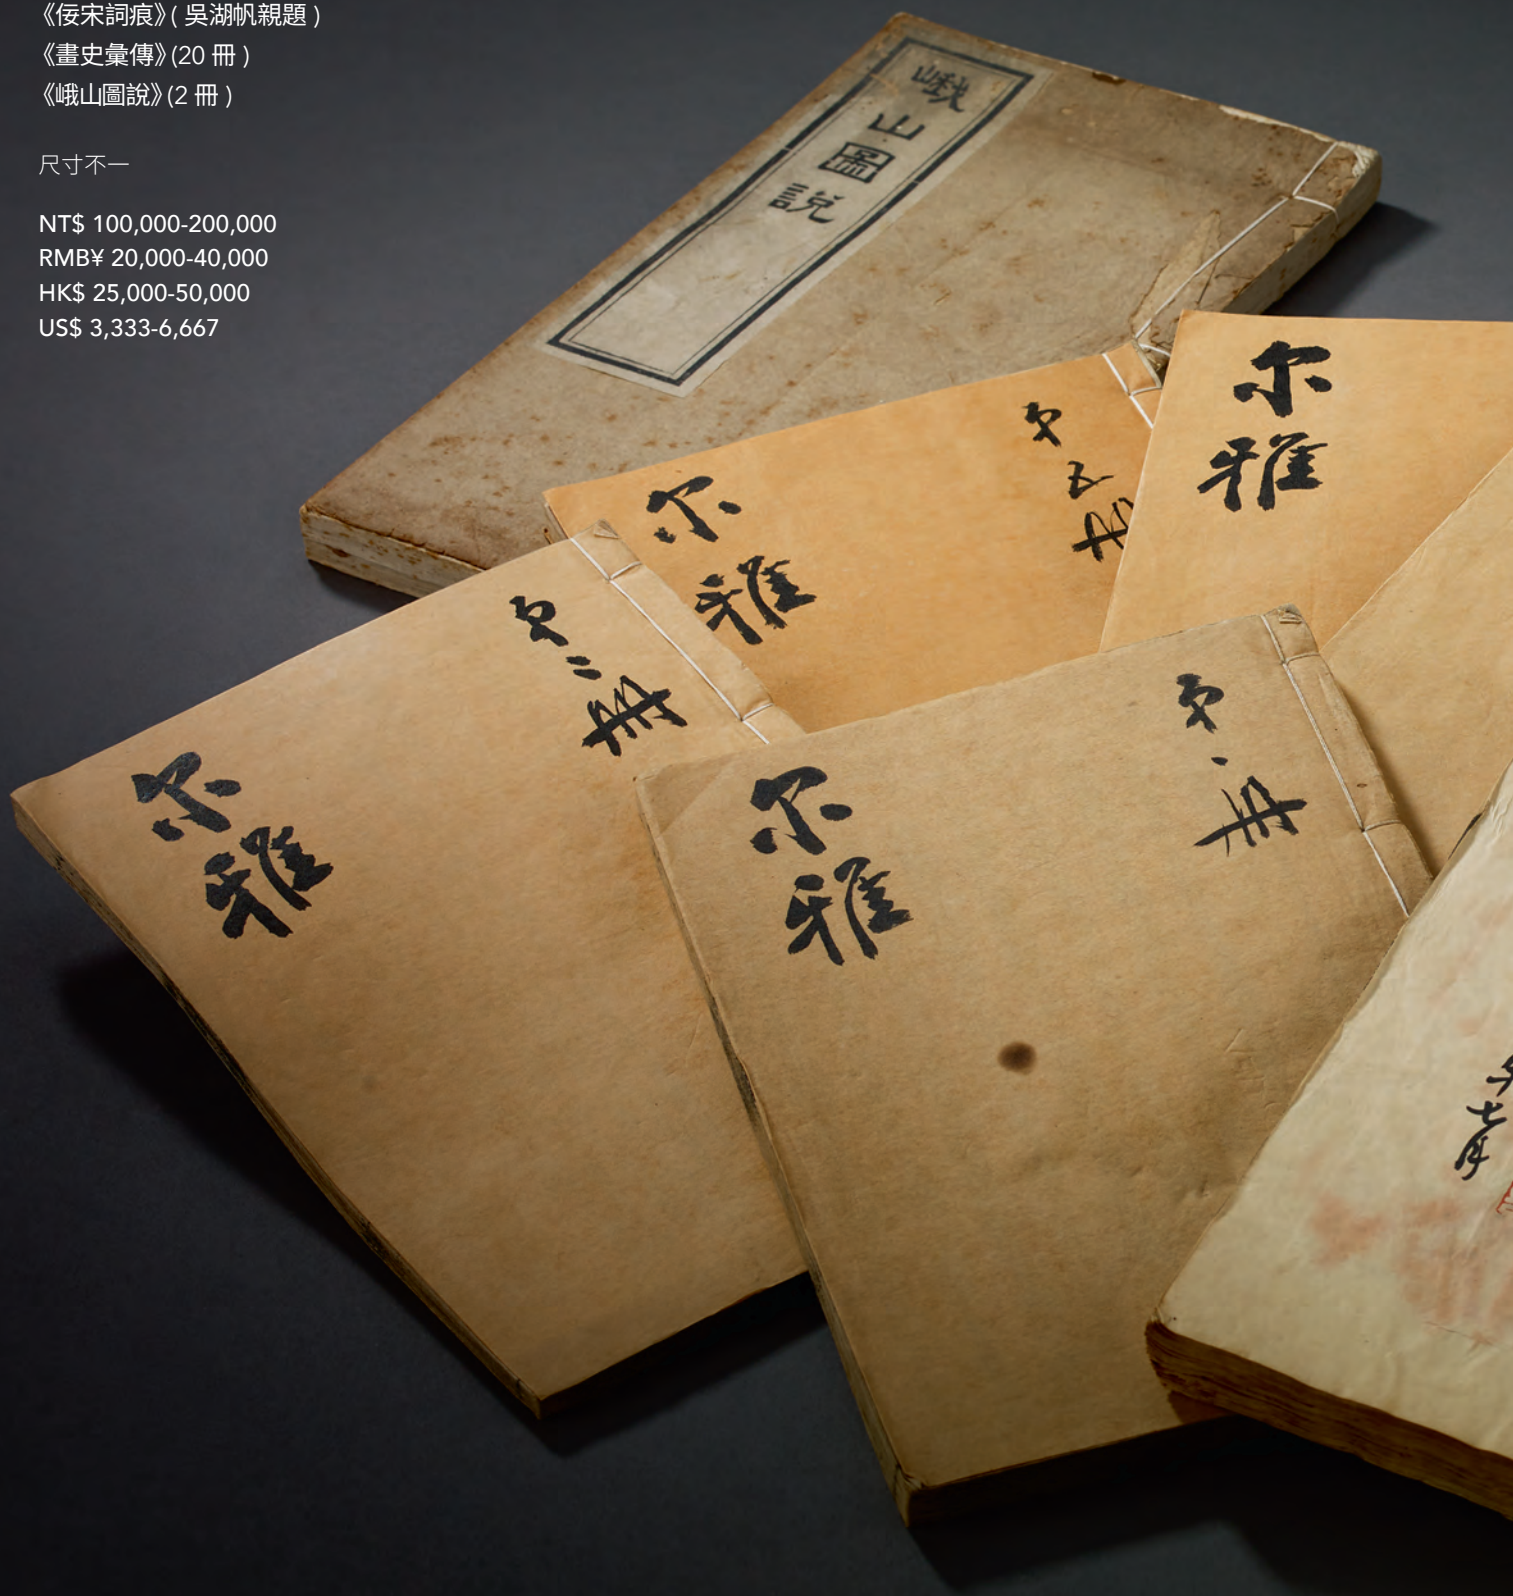 《佞宋詞痕》( 吳湖帆親題 )
《畫史彙傳》(20 冊 )
《峨山圖說》(2 冊 )
尺寸不一
NT$ 100,000-200,000
RMB¥ 20,000-40,000
HK$ 25,000-50,000
US$ 3,333-6,667
峨山圖說
尔雅
第五冊
尔雅
尔雅
第二冊
尔雅
第一冊
七月